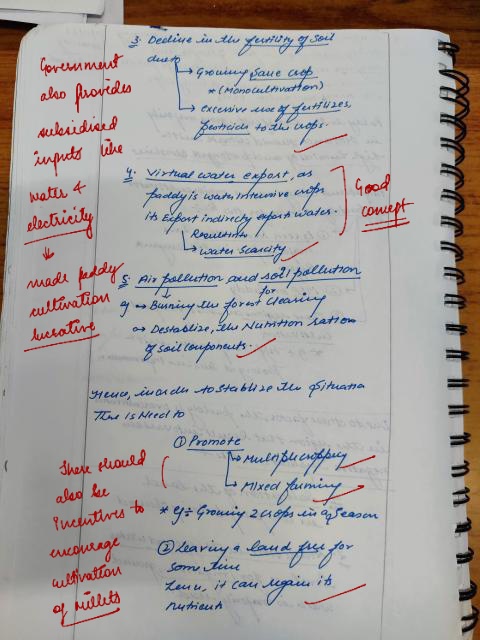 3. Decline in the fertility of soil
due to
→ Growing same crop
* (Monocultivation)
→ excessive use of fertilizes,
pesticide to the crops.
4. Virtual water export, as
paddy is water intensive crops
its Export indirectly export water.
Results in
→ water scarcity
5. Air pollution and soil pollution
eg → Burning the forest clearing
for
→ Destablize, the Nutrition ration
of soil components.
Hence, in order to stablize the situation
There is Need to
① Promote
→ Multiple cropping
→ Mixed farming
* eg ÷ Growing 2 crops in a season
② Leaving a land free for
some time
Hence, it can regain its
nutrients
Government
also provides
subsidised
inputs like
water &
electricity
↓
made paddy
cultivation
lucrative
Good
concept
There should
also be
incentives to
encourage
cultivation
of millets